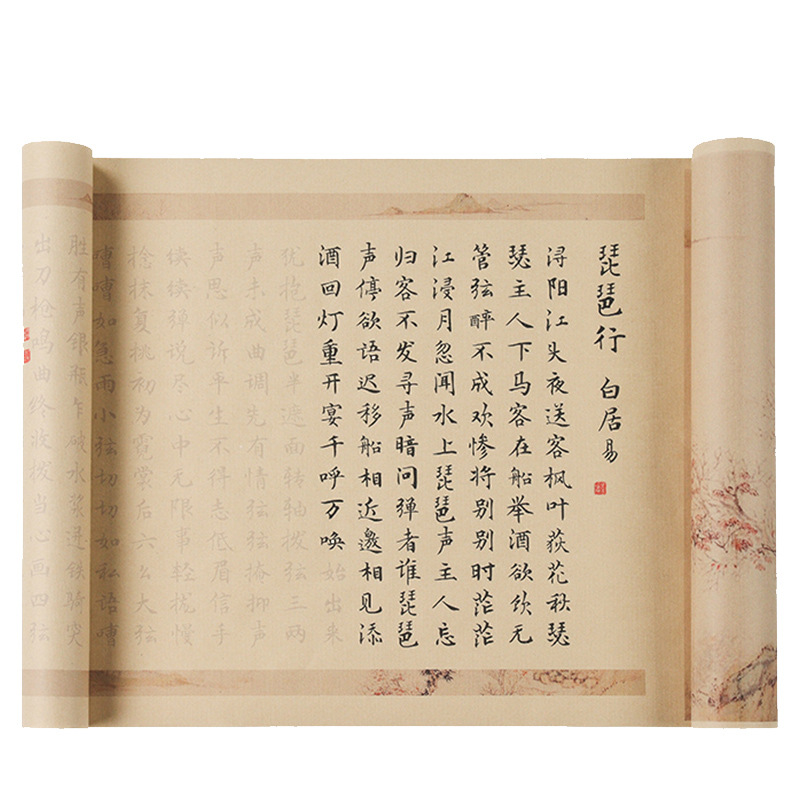 琵琶行 白居易
浔阳江头夜送客枫叶荻花秋瑟
瑟主人下马客在船举酒欲饮无
管弦醉不成欢惨将别别时茫茫
江浸月忽闻水上琵琶声主人忘
归客不发寻声暗问弹者谁琵琶
声停欲语迟移船相近邀相见添
酒回灯重开宴千呼万唤始出来
犹抱琵琶半遮面转轴拨弦三两
声未成曲调先有情弦弦掩抑声
声思似诉平生不得志低眉信手
续续弹说尽心中无限事轻拢慢
捻抹复挑初为霓裳后六幺大弦
嘈嘈如急雨小弦切切如私语嘈
胜有声银瓶乍破水浆迸铁骑突
出刀枪鸣曲终收拨当心画四弦